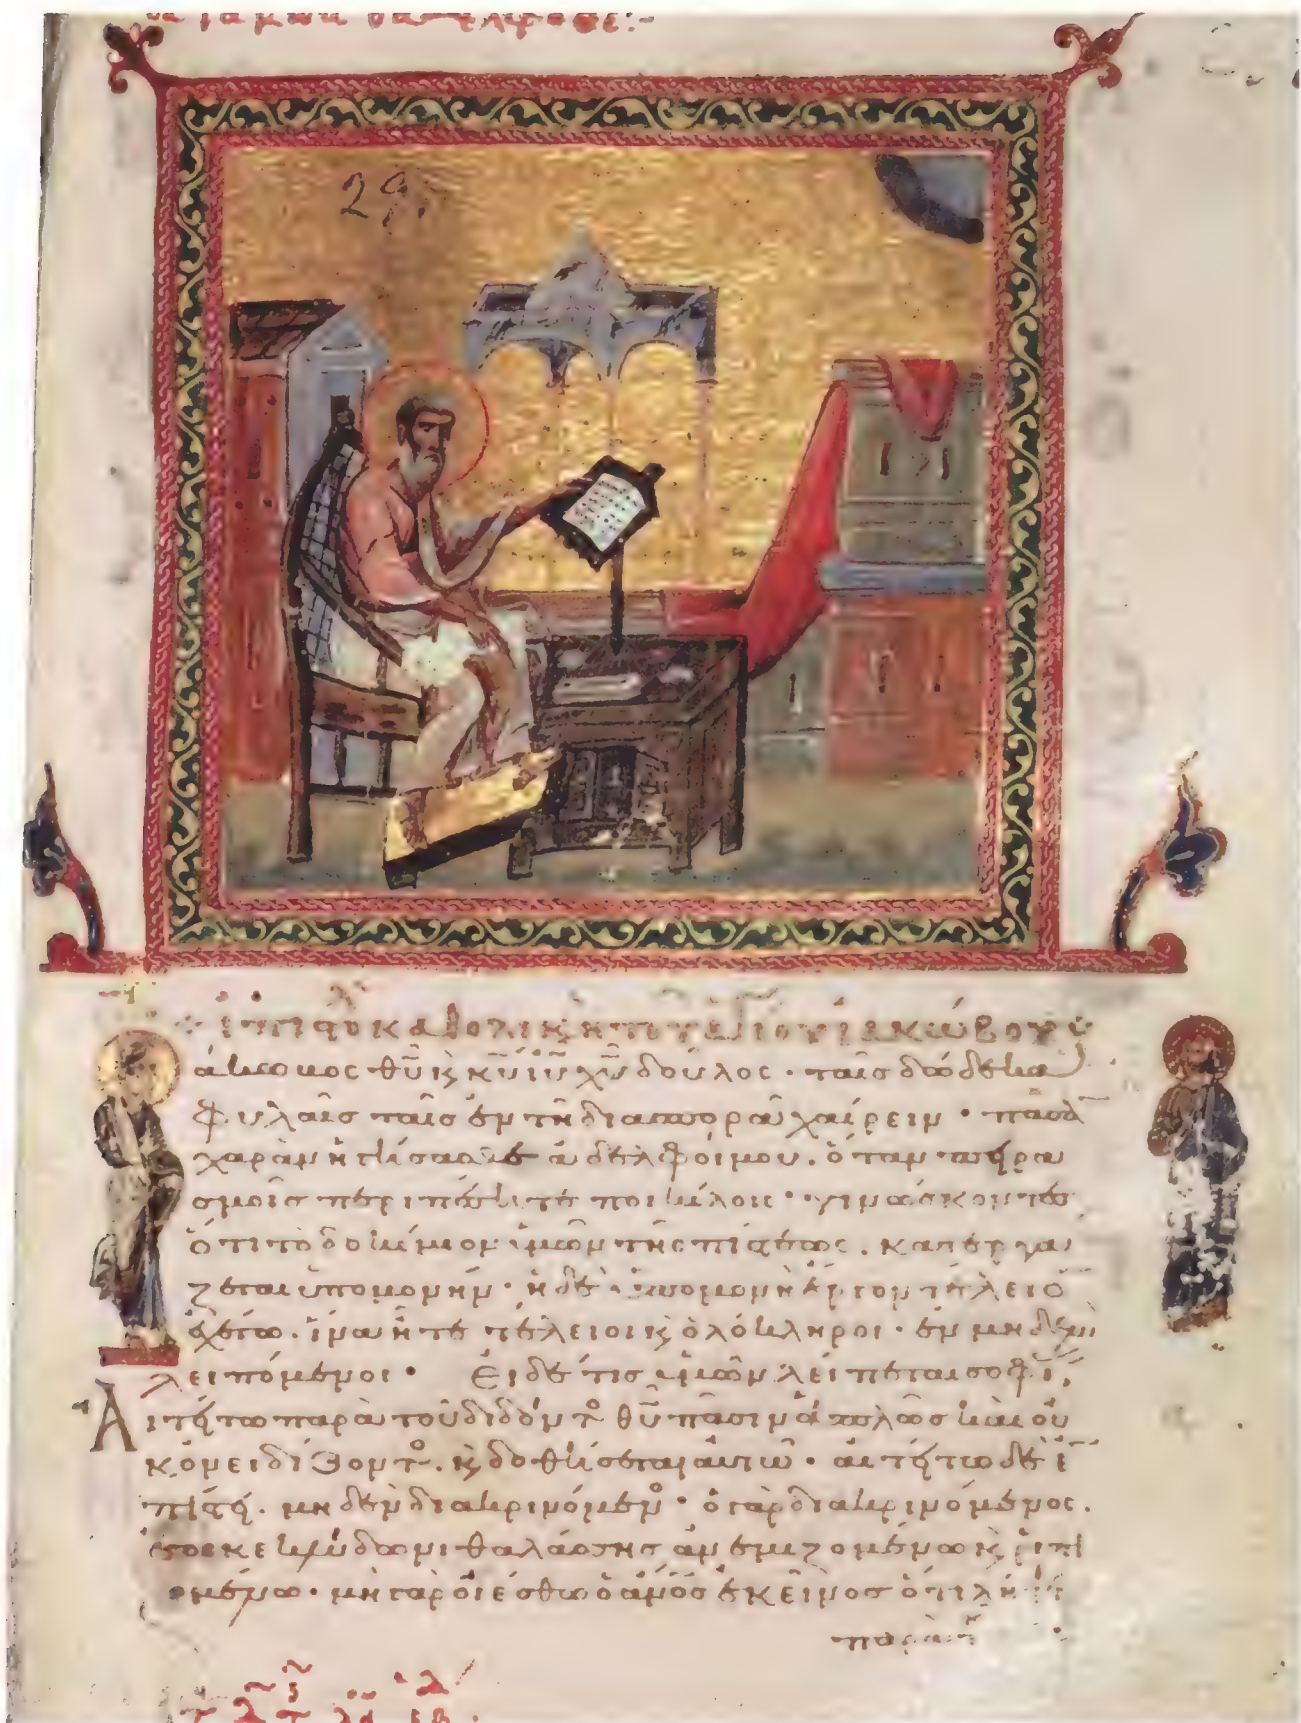 29.
ἐπιστο καθολικὴ τοῦ ἁγίου ἰακώβου
άκωβος θῦ κ κῦ ἰῦ χῦ δοῦλος · ταῖς δώδεκα
φυλαῖς ταῖς ἐν τῆ διασπορᾶ χαίρειν · πᾶσα
χαρὰν ἡγήσασθε ἀδελφοί μου. ὅταν πειρα
σμοῖς περιπέσητε ποικίλοις · γινώσκοντες
ὅτι τὸ δοκίμιον ὑμῶν τῆς πίστεως. κατεργά
ζεται ὑπομονήν · ἡ δὲ ὑπομονὴ ἔργον τέλειο
ἐχέτω. ἵνα ἦτε τέλειοι κ ὁλόκληροι · ἐν μηδενὶ
λειπόμενοι · Εἰ δέ τις ὑμῶν λείπεται σοφί
Αἰτείτω παρὰ τοῦ διδόντο θῦ πᾶσιν ἁπλῶς καὶ οὐ
κ ὀνειδίζοντο. κ δοθήσεται αὐτῶ · αἰτείτω δὲ ἐ
πίστει. μηδὲν διακρινόμενο · ὁ γὰρ διακρινόμενος.
ἔοικε κλύδωνι θαλάσσης ἀνεμιζομένω κ ῥιπι
ζομένω · μὴ γὰρ οἰέσθω ὁ ἀνος ἐκεῖνος ὅτι λή
παρὰ